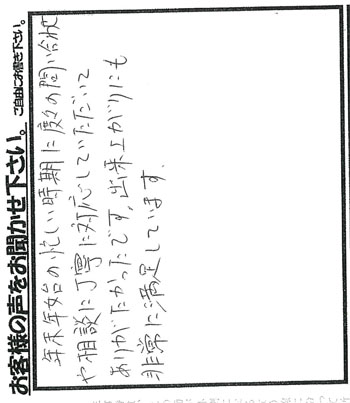 お客様の声をお聞かせ下さい。ご自由にお書き下さい。
年末年始の忙しい時期に度々の問い合わせ
や相談に丁寧に対応していただいて
ありがたかったです。出来上がりにも
非常に満足しています。